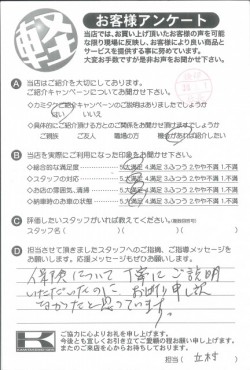 軽
お客様アンケート
当店では、お買い上げ頂いたお客様の声を可能
な限り現場に反映し、お客様により良い商品と
サービスを提供する事に努めています。
大変お手数ですが是非お声をお聞かせ下さい。
A 当店はご紹介を大切にしております。
ご紹介キャンペーンについてお聞かせ下さい。
キャンペーンのご説明はありましたでしょうか
はい いいえ
具体的にご紹介頂ける方とのご関係をお聞かせ頂けますでしょうか
ご親族 ご友人 職場の方 機会があれば紹介したい
B 当店を実際にご利用になった印象をお聞かせ下さい。
総合的な満足度 5.大満足 4.満足 3.ふつう 2.やや不満 1.不満
スタッフの対応 5.大満足 4.満足 3.ふつう 2.やや不満 1.不満
お店の雰囲気、清掃 5.大満足 4.満足 3.ふつう 2.やや不満 1.不満
納車時のお車の状態 5.大満足 4.満足 3.ふつう 2.やや不満 1.不満
C 評価したいスタッフがいれば教えてください。
スタッフ名( )( )( )
D 担当させて頂きましたスタッフへのご指摘、ご指導メッセージを
お願いします。応援メッセージもぜひお願いします。
保険について丁寧にご説明
いただいたのに お断り申し訳
なかったと思っています。
K
ご協力に心よりお礼を申し上げます。
今後とも宜しくお引き立てご愛顧の程お願い申し上げます。
またのご来店を心からお待ちしております。
担当( 立村 )